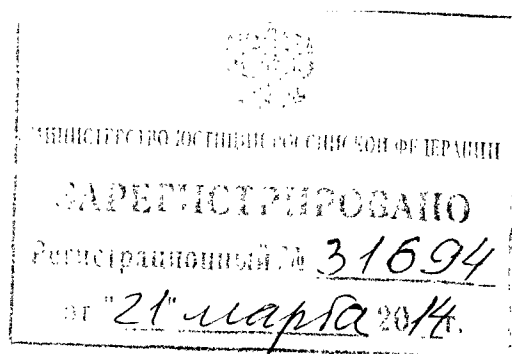 МИНИСТЕРСТВО ЮСТИЦИИ РОССИЙСКОЙ ФЕДЕРАЦИИ
ЗАРЕГИСТРИРОВАНО
Регистрационный № 31694
от "21" марта 2014г.